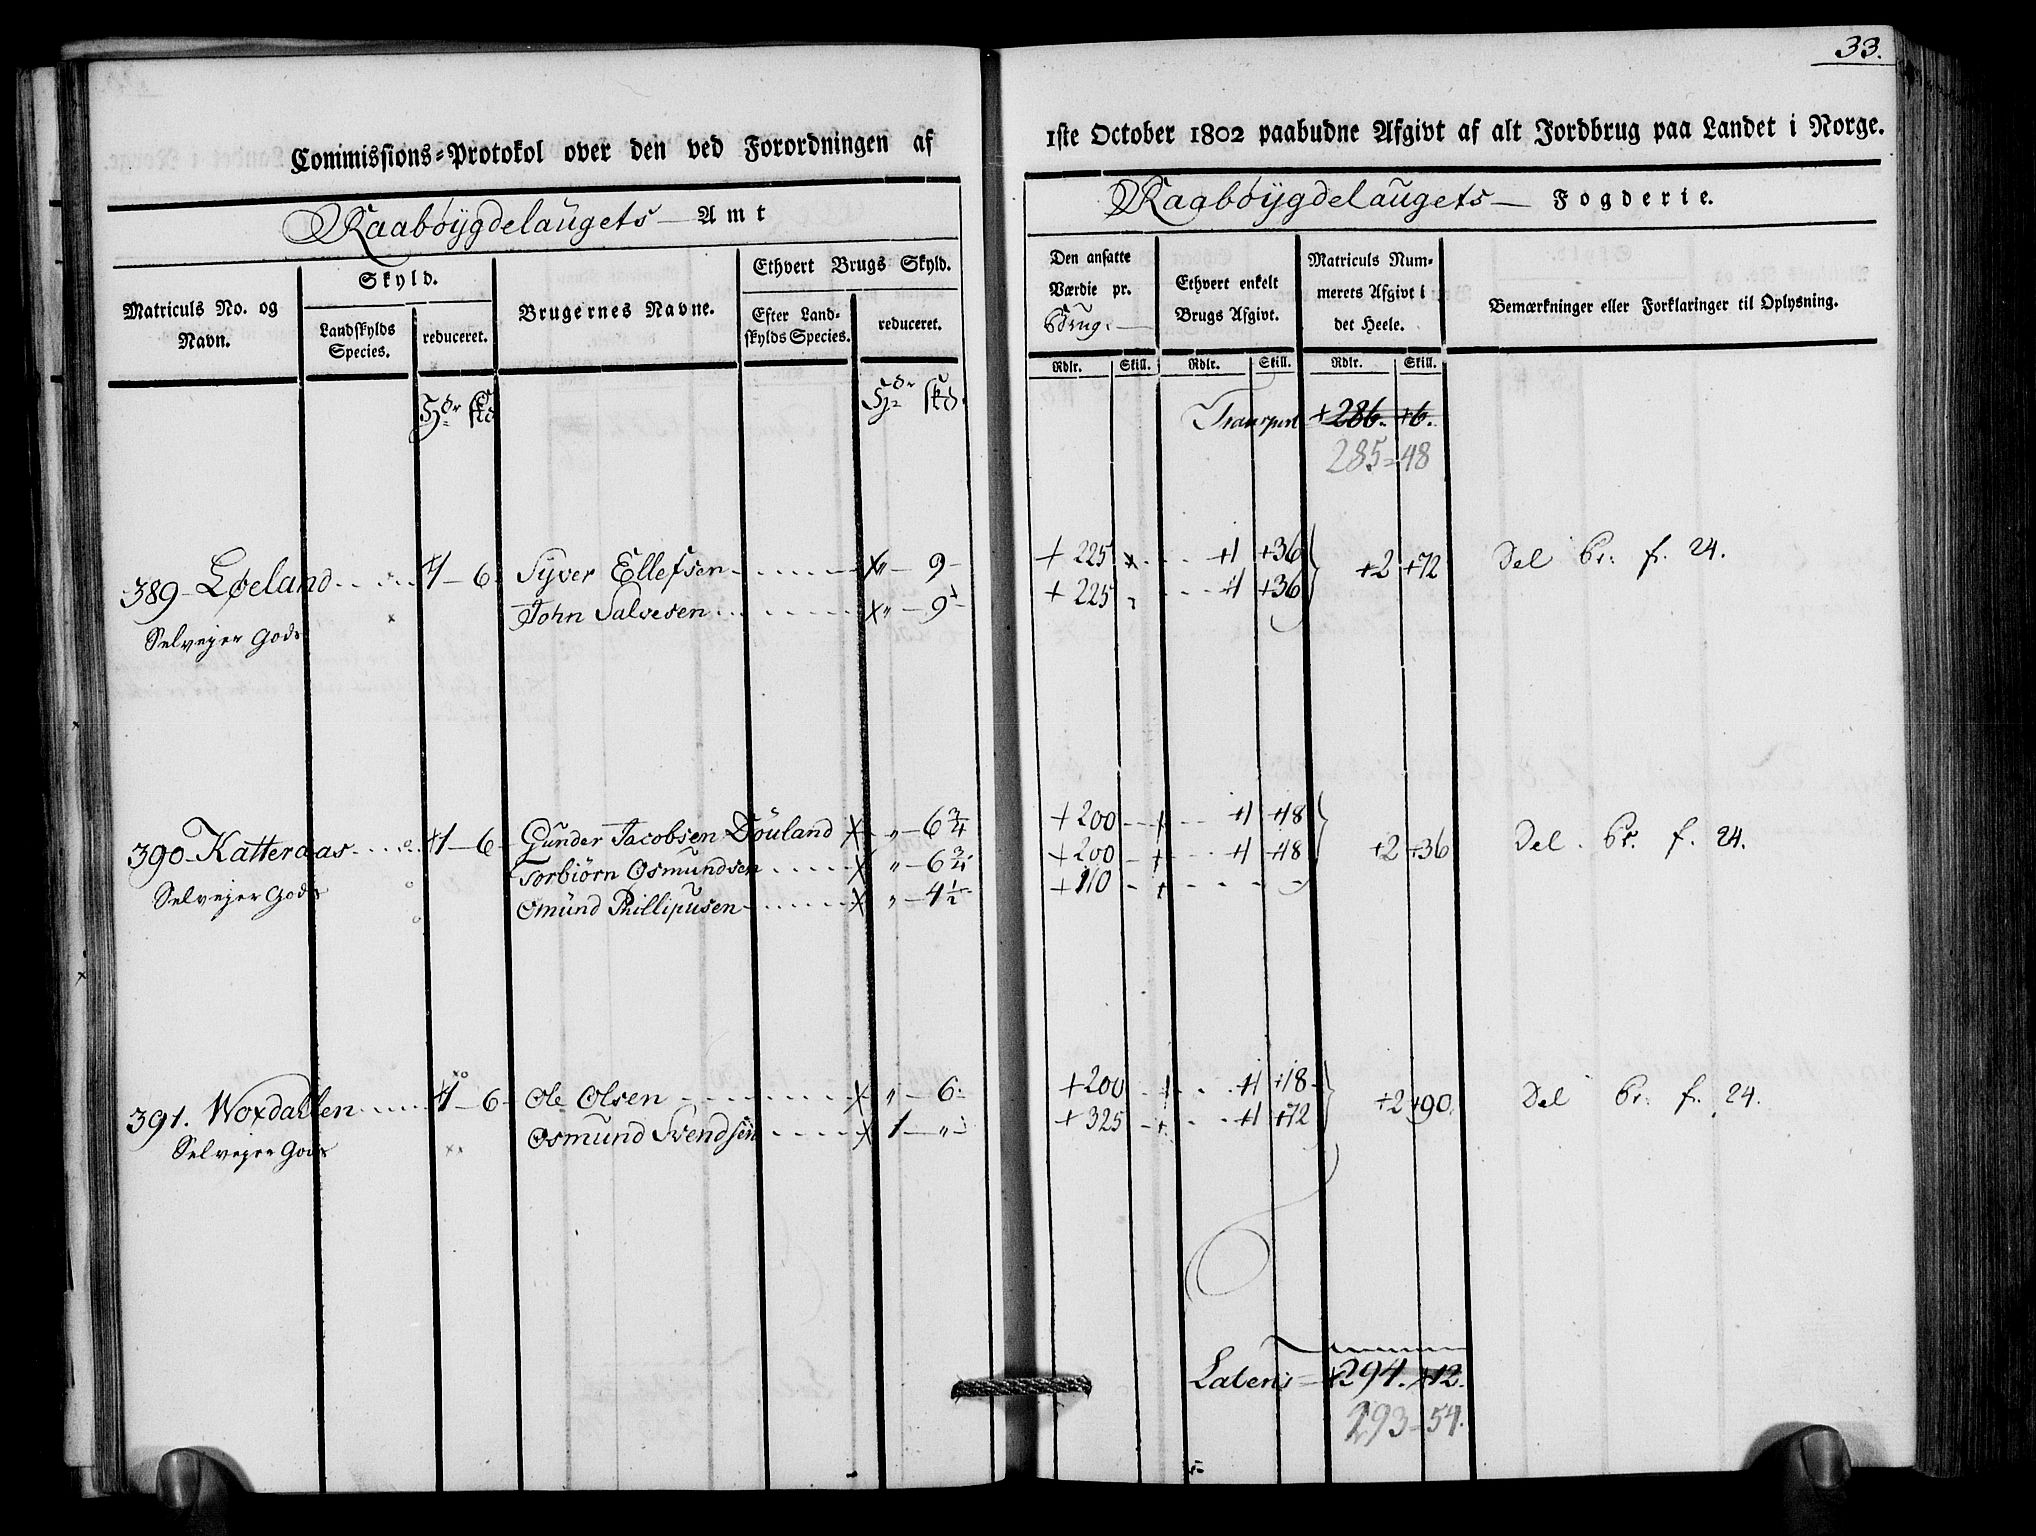 33.
Commissions=Protokol over den ved Forordningen af 1ste October 1802 paabudne Afgivt af alt Jordbrug paa Landet i Norge.
Raabøygdelaugets Amt
Raabøygdelaugets Fogderie.
Matriculs No. og Navn.
Skyld.
Landskylds Species.
reduceret.
Brugernes Navne.
Ethvert Brugs Skyld.
Efter Landskylds Species.
reduceret.
Den ansatte Værdie pr. Brug.
Ethvert enkelt Brugs Afgivt.
Matriculs Nummerets Afgivt i det Heele.
Bemærkninger eller Forklaringer til Oplysning.
Rdlr. Skill. Rdlr. Skill. Rdlr. Skill.
Transport +286. +6.
285=48
389 Løeland 1 — 6 Syver Ellefsen " — 9 + 225 +1 +36 +2 +72 Del Br. f. 24.
John Salvesen " — 9 + 225 +1 +36
Selvejer Gods
390 Katteraas 1 — 6 Gunder Jacobsen Døuland " — 6 3/4 +200 +1 +18 +2 +36 Del Br. f. 24.
Torbiørn Osmundsen " — 6 3/4 +200 +1 +18
Selvejer Gods
Omund Phillipusen " — 4 1/2 +110
391. Woxdallen 1 — 6 Ole Olsen " — 6 +200 +1 +18 +2 +90. Del Br. f. 24.
Osmund Svendsen 1 — " +325 +1 +72
Selvejer Gods
Lateris +294. +12.
293=54.